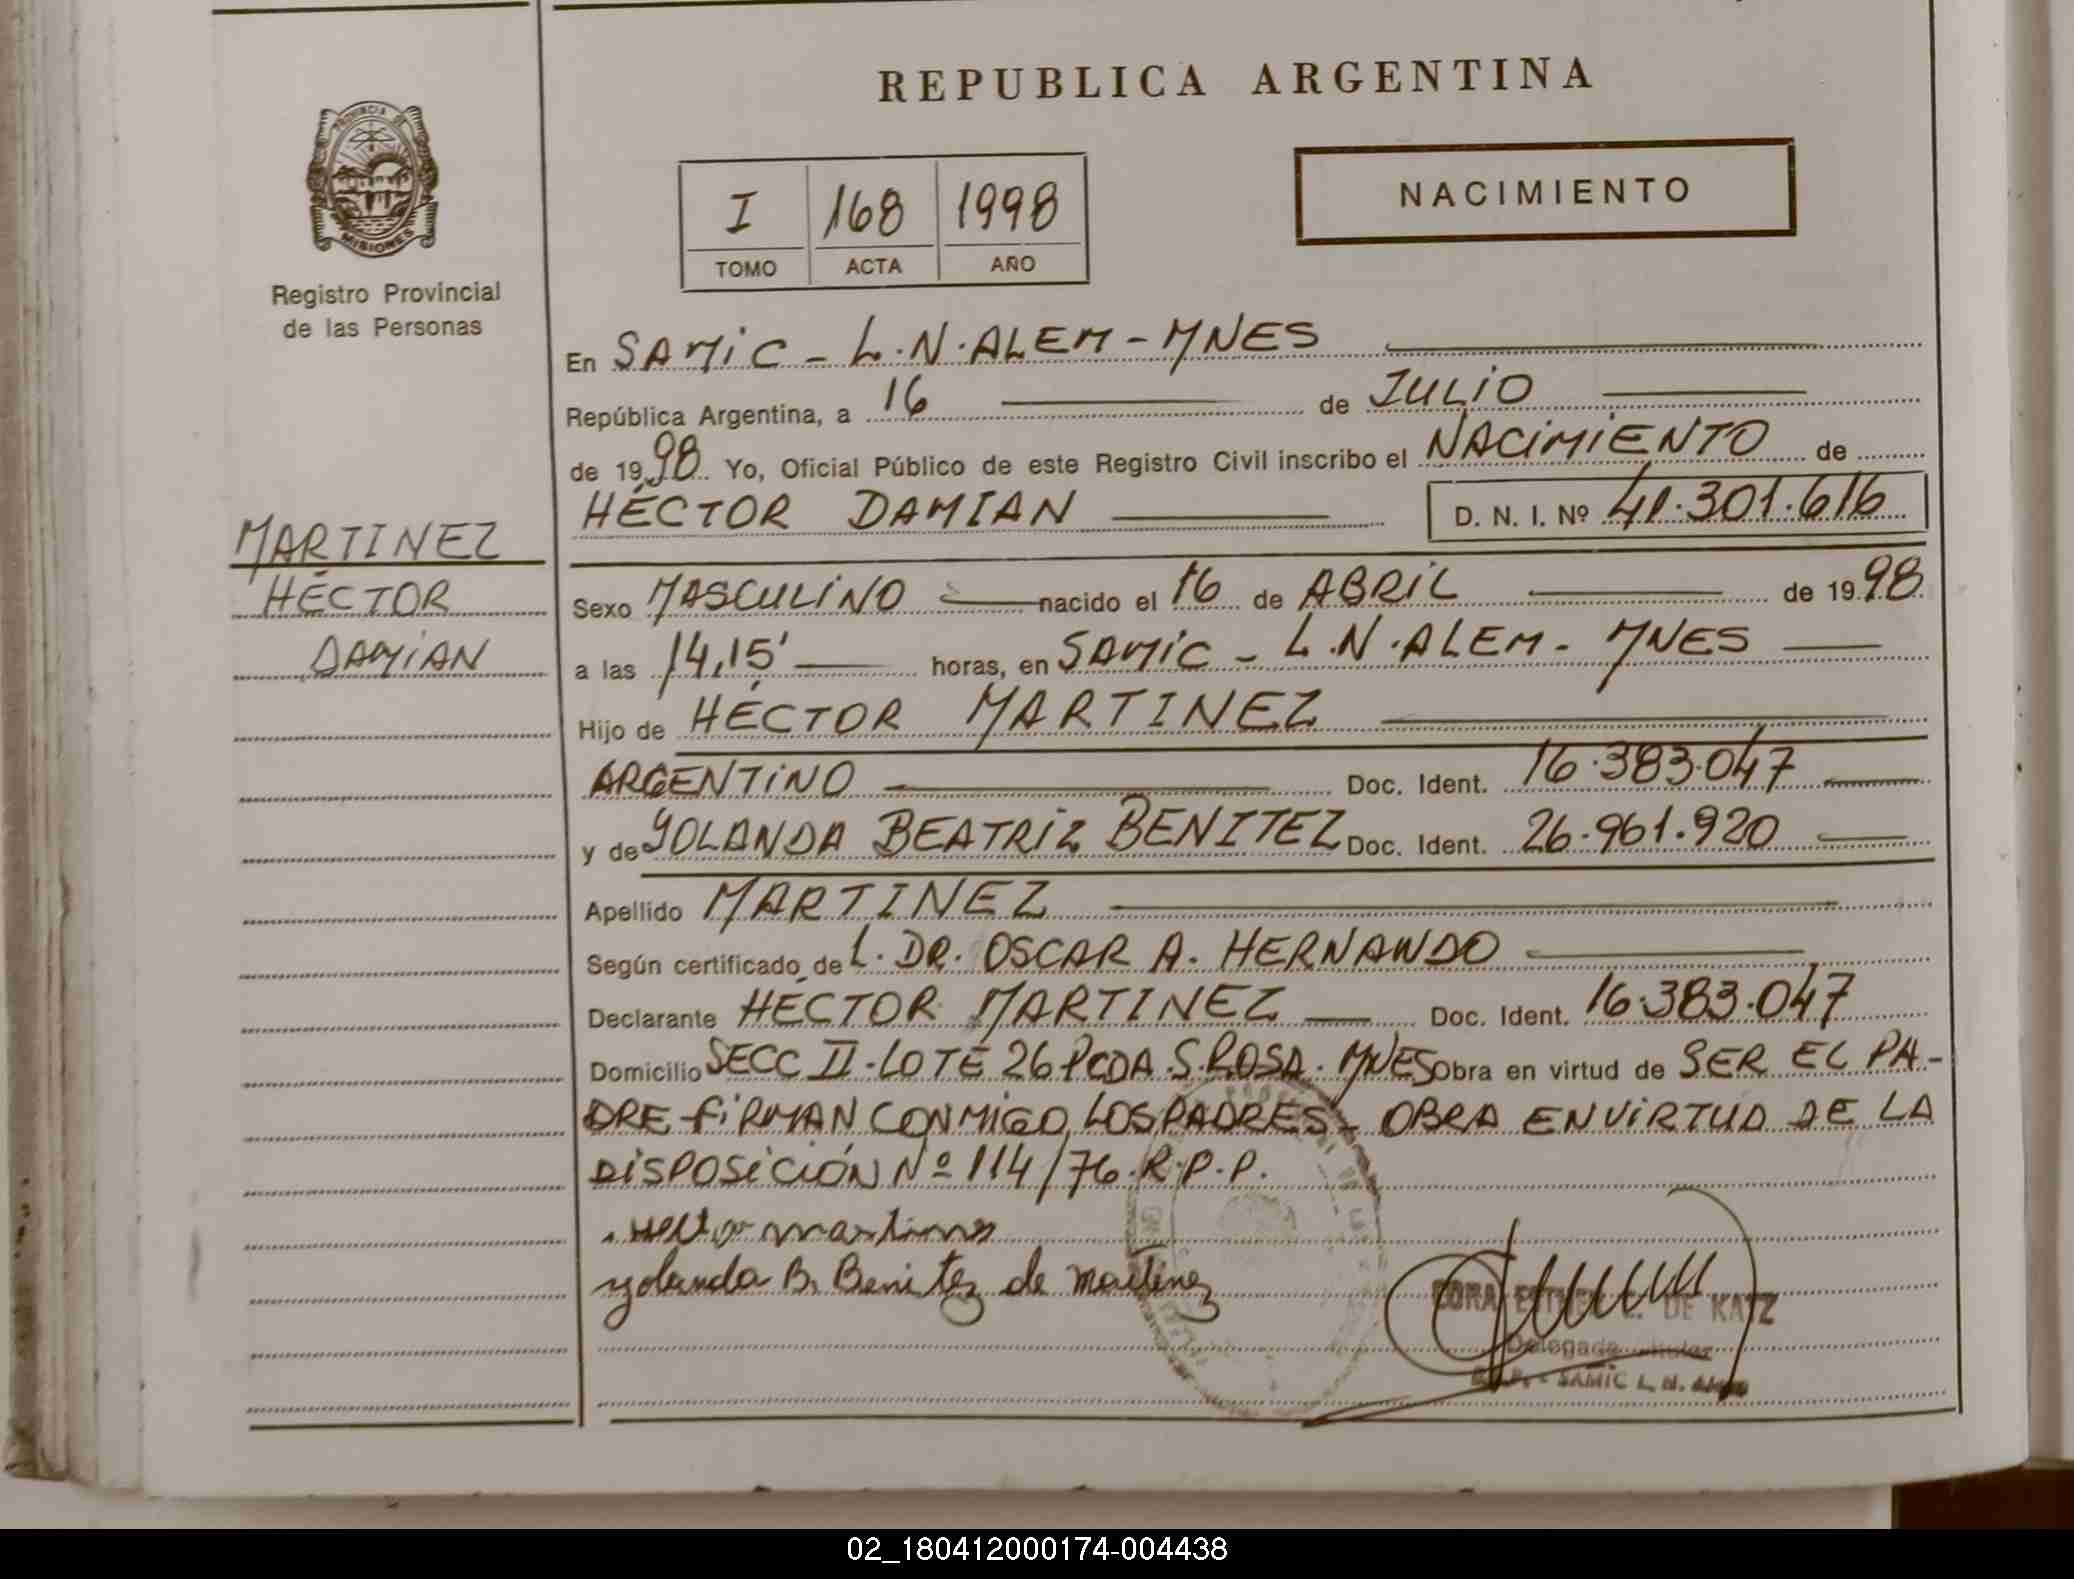 REPUBLICA ARGENTINA
PROVINCIA DE
MISIONES
Registro Provincial
de las Personas
I 168 1998
TOMO ACTA AÑO
NACIMIENTO
En SAMIC - L.N. ALEM - MNES
República Argentina, a 16 de JULIO
de 1998 Yo, Oficial Público de este Registro Civil inscribo el NACIMIENTO de
HÉCTOR DAMIAN D. N. I. Nº 41.301.616
MARTINEZ
HÉCTOR
DAMIAN
Sexo MASCULINO nacido el 16 de ABRIL de 1998
a las 14,15' horas, en SAMIC - L.N. ALEM - MNES
Hijo de HÉCTOR MARTINEZ
ARGENTINO Doc. Ident. 16.383.047
y de YOLANDA BEATRIZ BENITEZ Doc. Ident. 26.961.920
Apellido MARTINEZ
Según certificado de L. DR. OSCAR A. HERNANDO
Declarante HÉCTOR MARTINEZ Doc. Ident. 16.383.047
Domicilio SECC II - LOTE 26 PCDA. S. ROSA. MNES Obra en virtud de SER EL PA-
DRE FIRMAN CONMIGO LOS PADRES - OBRA EN VIRTUD DE LA
DISPOSICIÓN Nº 114/76. R.P.P.
Hector martines
yolanda B. Benitez de Martinez
DE KATZ
Delegada titular
R.P.P. - SAMIC L. N. ALEM
02_180412000174-004438